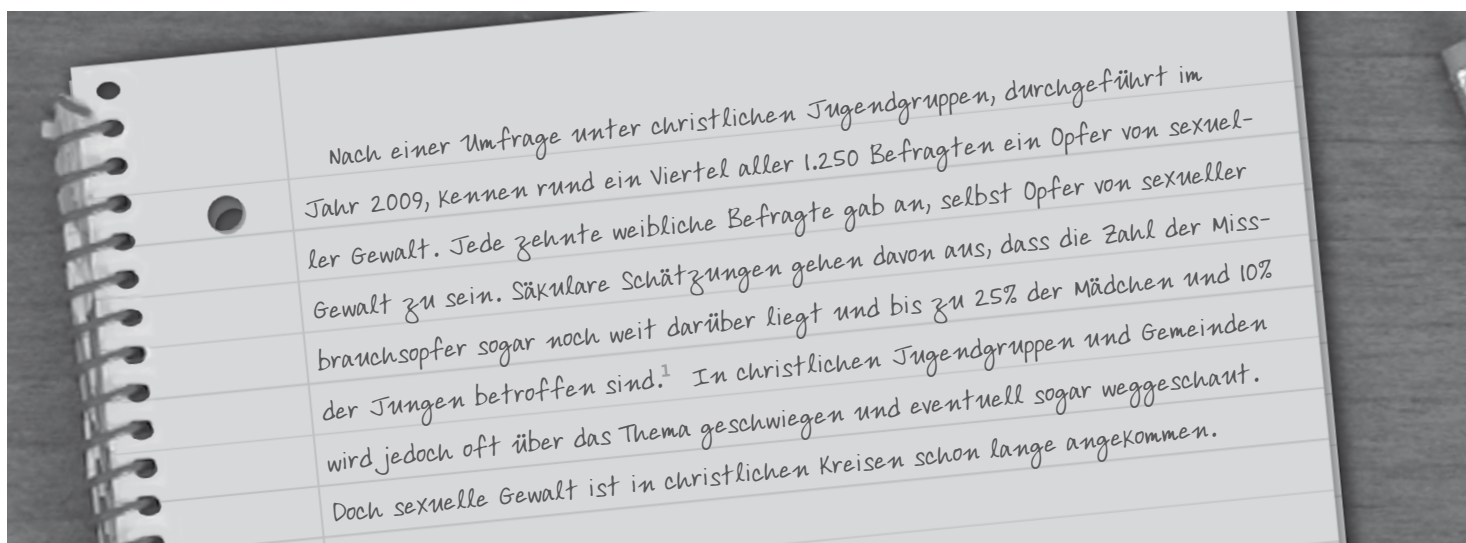 Nach einer Umfrage unter christlichen Jugendgruppen, durchgeführt im
Jahr 2009, kennen rund ein Viertel aller 1.250 Befragten ein Opfer von sexuel-
ler Gewalt. Jede zehnte weibliche Befragte gab an, selbst Opfer von sexueller
Gewalt zu sein. Säkulare Schätzungen gehen davon aus, dass die Zahl der Miss-
brauchsopfer sogar noch weit darüber liegt und bis zu 25% der Mädchen und 10%
der Jungen betroffen sind.¹ In christlichen Jugendgruppen und Gemeinden
wird jedoch oft über das Thema geschwiegen und eventuell sogar weggeschaut.
Doch sexuelle Gewalt ist in christlichen Kreisen schon lange angekommen.